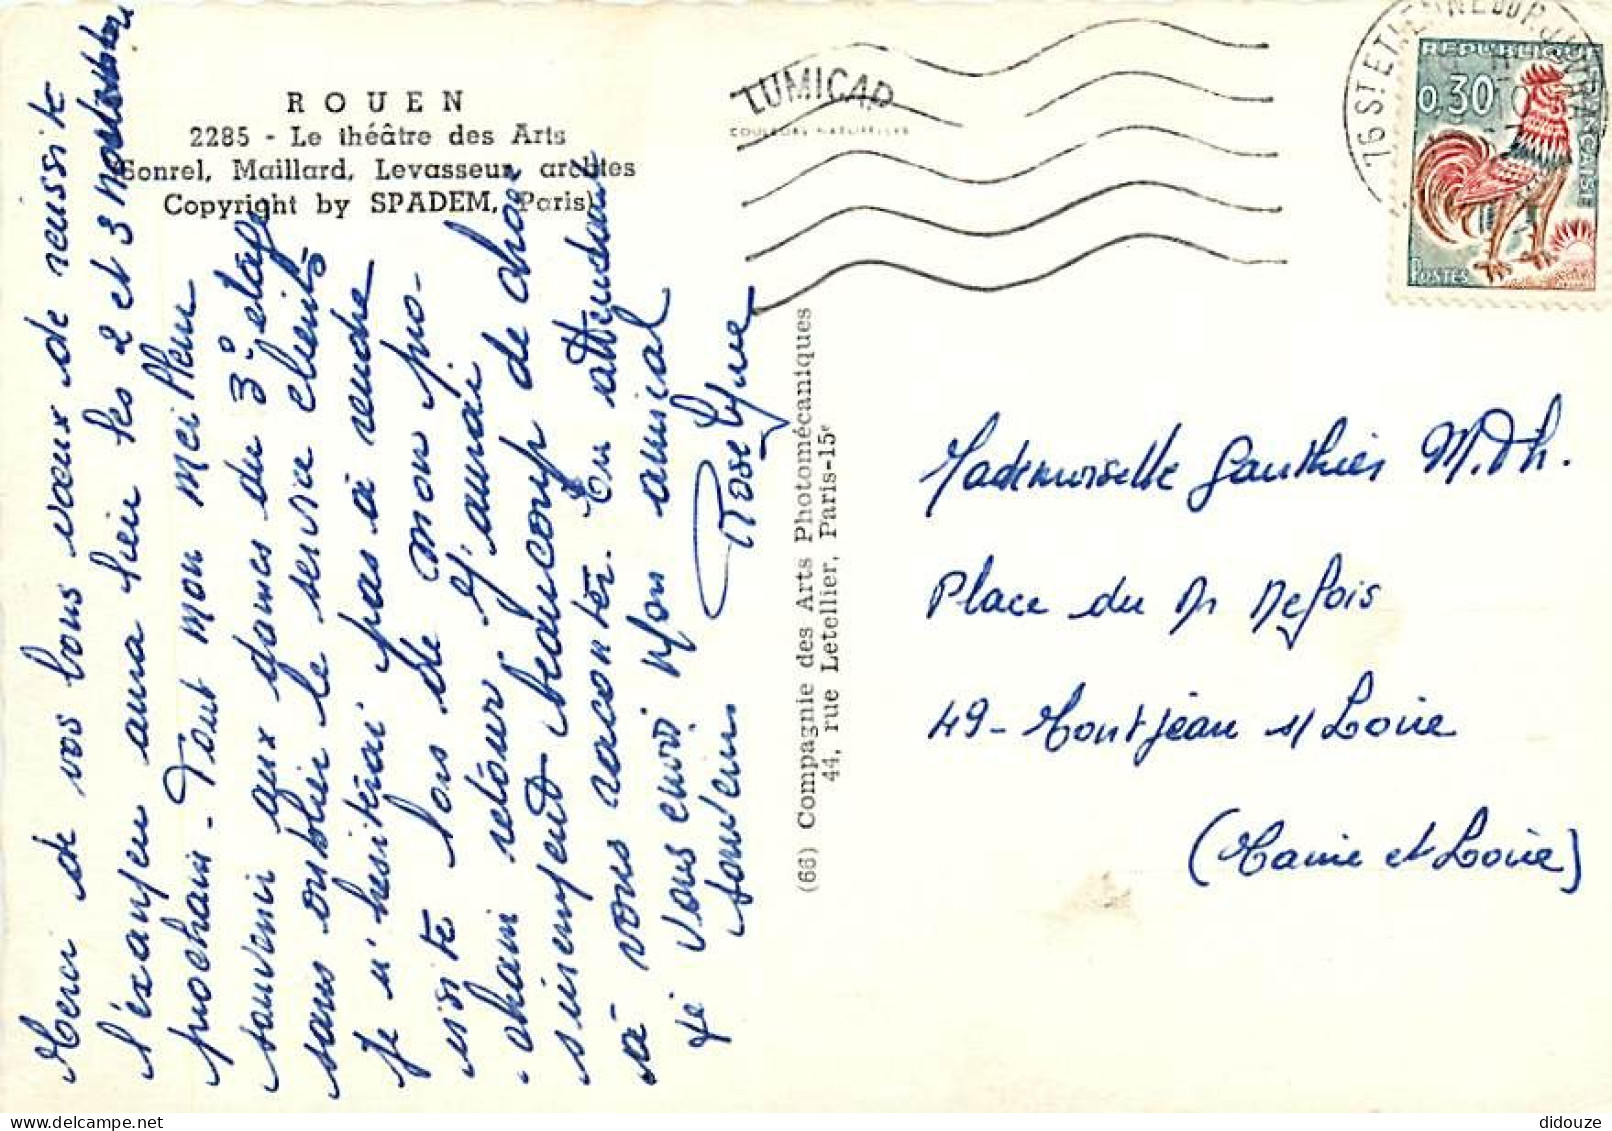 ROUEN
2285 - Le théâtre des Arts
(Sonrel, Maillard, Levasseur, archtes
Copyright by SPADEM, Paris)
LUMICAP
COULEURS NATURELLES
76 ST ETIENNE DU R
REPUBLIQUE
FRANÇAISE
0,30
POSTES
Merci de vos bons vœux de reussite
l'examen aura lieu les 2 et 3
prochain - Tout mon meilleur
souvenir aux dames du 3° étage
sans oublier le service clients
Je n'hesiterai pas à rendre
visite lors de mon pro-
chain retour J'aurai
surement beaucoup de chose
à vous raconter. En attendant
je vous envoi mon amical
souvenir Roselyne
(66) Compagnie des Arts Photomécaniques
44, rue Letellier, Paris-15e
Mademoiselle Gauthier M.Th.
Place du
49 - Montjean s/ Loire
(Maine et Loire)
didouze